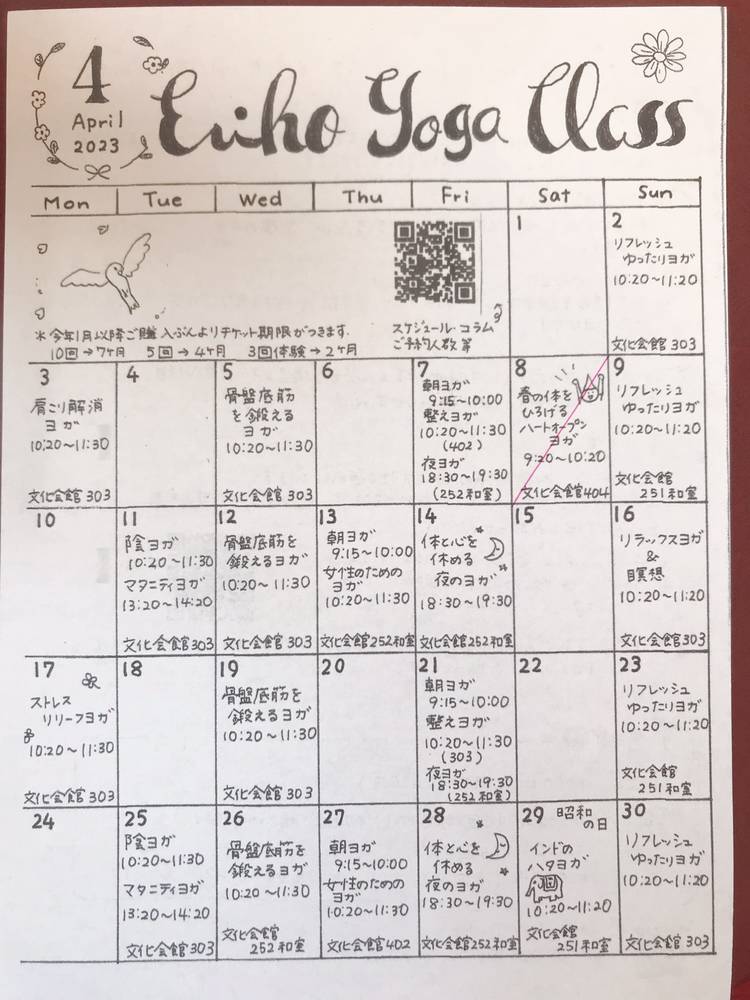 4
April
2023
Eriho Yoga Class
Mon Tue Wed Thu Fri Sat Sun
*今年1月以降ご購入ぶんよりチケット期限がつきます.
10回→7ヶ月 5回→4ヶ月 3回体験→2ヶ月
スケジュール・コラム
ご予約人数等
1
2
リフレッシュ
ゆったりヨガ
10:20~11:20
文化会館303
3
肩こり解消
ヨガ
10:20~11:30
文化会館303
4
5
骨盤底筋
を鍛える
ヨガ
10:20~11:30
文化会館303
6
7
朝ヨガ
9:15~10:00
整えヨガ
10:20~11:30
(402)
夜ヨガ
18:30~19:30
(252和室)
8
春の体を
ひろげる
ハートオープン
ヨガ
9:20~10:20
文化会館404
9
リフレッシュ
ゆったりヨガ
10:20~11:20
文化会館
251和室
10
11
陰ヨガ
10:20~11:30
マタニティヨガ
13:20~14:20
文化会館303
12
骨盤底筋を
鍛えるヨガ
10:20~11:30
文化会館303
13
朝ヨガ
9:15~10:00
女性のための
ヨガ
10:20~11:30
文化会館252和室
14
体と心を
休める
夜のヨガ
18:30~19:30
文化会館252和室
15
16
リラックスヨガ
&
瞑想
10:20~11:20
文化会館303
17
ストレス
リリーフヨガ
10:20~11:30
文化会館303
18
19
骨盤底筋を
鍛えるヨガ
10:20~11:30
文化会館303
20
21
朝ヨガ
9:15~10:00
整えヨガ
10:20~11:30
(303)
夜ヨガ
18:30~19:30
(252和室)
22
23
リフレッシュ
ゆったりヨガ
10:20~11:20
文化会館
251和室
24
25
陰ヨガ
10:20~11:30
マタニティヨガ
13:20~14:20
文化会館303
26
骨盤底筋を
鍛えるヨガ
10:20~11:30
文化会館
252和室
27
朝ヨガ
9:15~10:00
女性のための
ヨガ
10:20~11:30
文化会館402
28
体と心を
休める
夜のヨガ
18:30~19:30
文化会館252和室
29 昭和
の日
インドの
ハタヨガ
10:20~11:20
文化会館
251和室
30
リフレッシュ
ゆったりヨガ
10:20~11:20
文化会館303